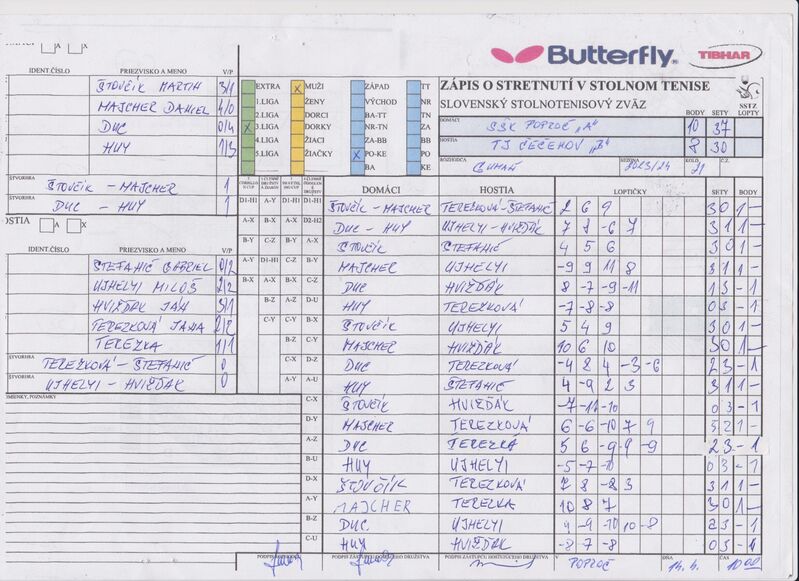 Butterfly
TIBHAR
ZÁPIS O STRETNUTÍ V STOLNOM TENISE
SLOVENSKÝ STOLNOTENISOVÝ ZVÄZ
NSTZ LOPTY
DOMÁCI BODY SETY
SŠK POPROČ "A" 10 37
HOSTIA
TJ ČEČEHOV "B" 8 30
ROZHODCA SEZONA 2023/24 KOLO 21 Č.Z.
EXTRA MUŽI ZÁPAD TT
1.LIGA ŽENY VÝCHOD NR
2.LIGA DORCI BA-TT TN
X 3.LIGA DORKY NR-TN ZA
4.LIGA ŽIACI ZA-BB BB
5.LIGA ŽIAČKY X PO-KE PO
BA KE
A X
IDENT.ČÍSLO PRIEZVISKO A MENO V/P
ŠTOVČÍK MARTIN 3/1
MAJCHER DANIEL 4/0
DUC 0/4
HUY 1/3
ŠTVORHRA
ŠTOVČÍK - MAJCHER 1
DUC - HUY 1
HOSTIA A X
IDENT.ČÍSLO PRIEZVISKO A MENO V/P
ŠTEFANIČ GABRIEL 0/2
UJHELYI MILOŠ 2/2
HVIŽĎÁK JÁN 3/1
TEREZKOVÁ JANA 2/2
TEREZKA 1/1
ŠTVORHRA
TEREZKOVÁ - ŠTEFANIČ 0
ŠTVORHRA
UJHELYI - HVIŽĎÁK 0
DOMÁCI HOSTIA LOPTIČKY SETY BODY
ŠTOVČÍK - MAJCHER TEREZKOVÁ - ŠTEFANIČ 2 6 9 3 0 1 -
DUC - HUY UJHELYI - HVIŽĎÁK 7 8 -6 7 3 1 1 -
ŠTOVČÍK ŠTEFANIČ 4 5 6 3 0 1 -
MAJCHER UJHELYI -9 9 11 8 3 1 1 -
DUC HVIŽĎÁK 8 -7 -9 -11 1 3 - 1
HUY TEREZKOVÁ -7 -8 -8 0 3 - 1
ŠTOVČÍK UJHELYI 5 4 9 3 0 1 -
MAJCHER HVIŽĎÁK 10 6 10 3 0 1 -
DUC TEREZKOVÁ -4 2 4 -3 -6 2 3 - 1
HUY ŠTEFANIČ 4 -9 2 3 3 1 1 -
C-X ŠTOVČÍK HVIŽĎÁK -7 -11 -10 0 3 - 1
D-Y MAJCHER TEREZKOVÁ 6 -6 -10 7 9 3 2 1 -
A-Z DUC TEREZKA 5 6 -9 -9 -9 2 3 - 1
B-U HUY UJHELYI -5 -7 -10 0 3 - 1
D-X ŠTOVČÍK TEREZKOVÁ 7 8 -8 3 3 1 1 -
A-Y MAJCHER TEREZKA 10 8 7 3 0 1 -
B-Z DUC UJHELYI 4 -9 -10 10 -8 2 3 - 1
C-U HUY HVIŽĎÁK -8 -7 -8 0 3 - 1
PODPIS ZÁSTUPCU HOSŤUJÚCEHO DRUŽSTVA
V POPROČ DŇA 14.4. ČAS 10 00